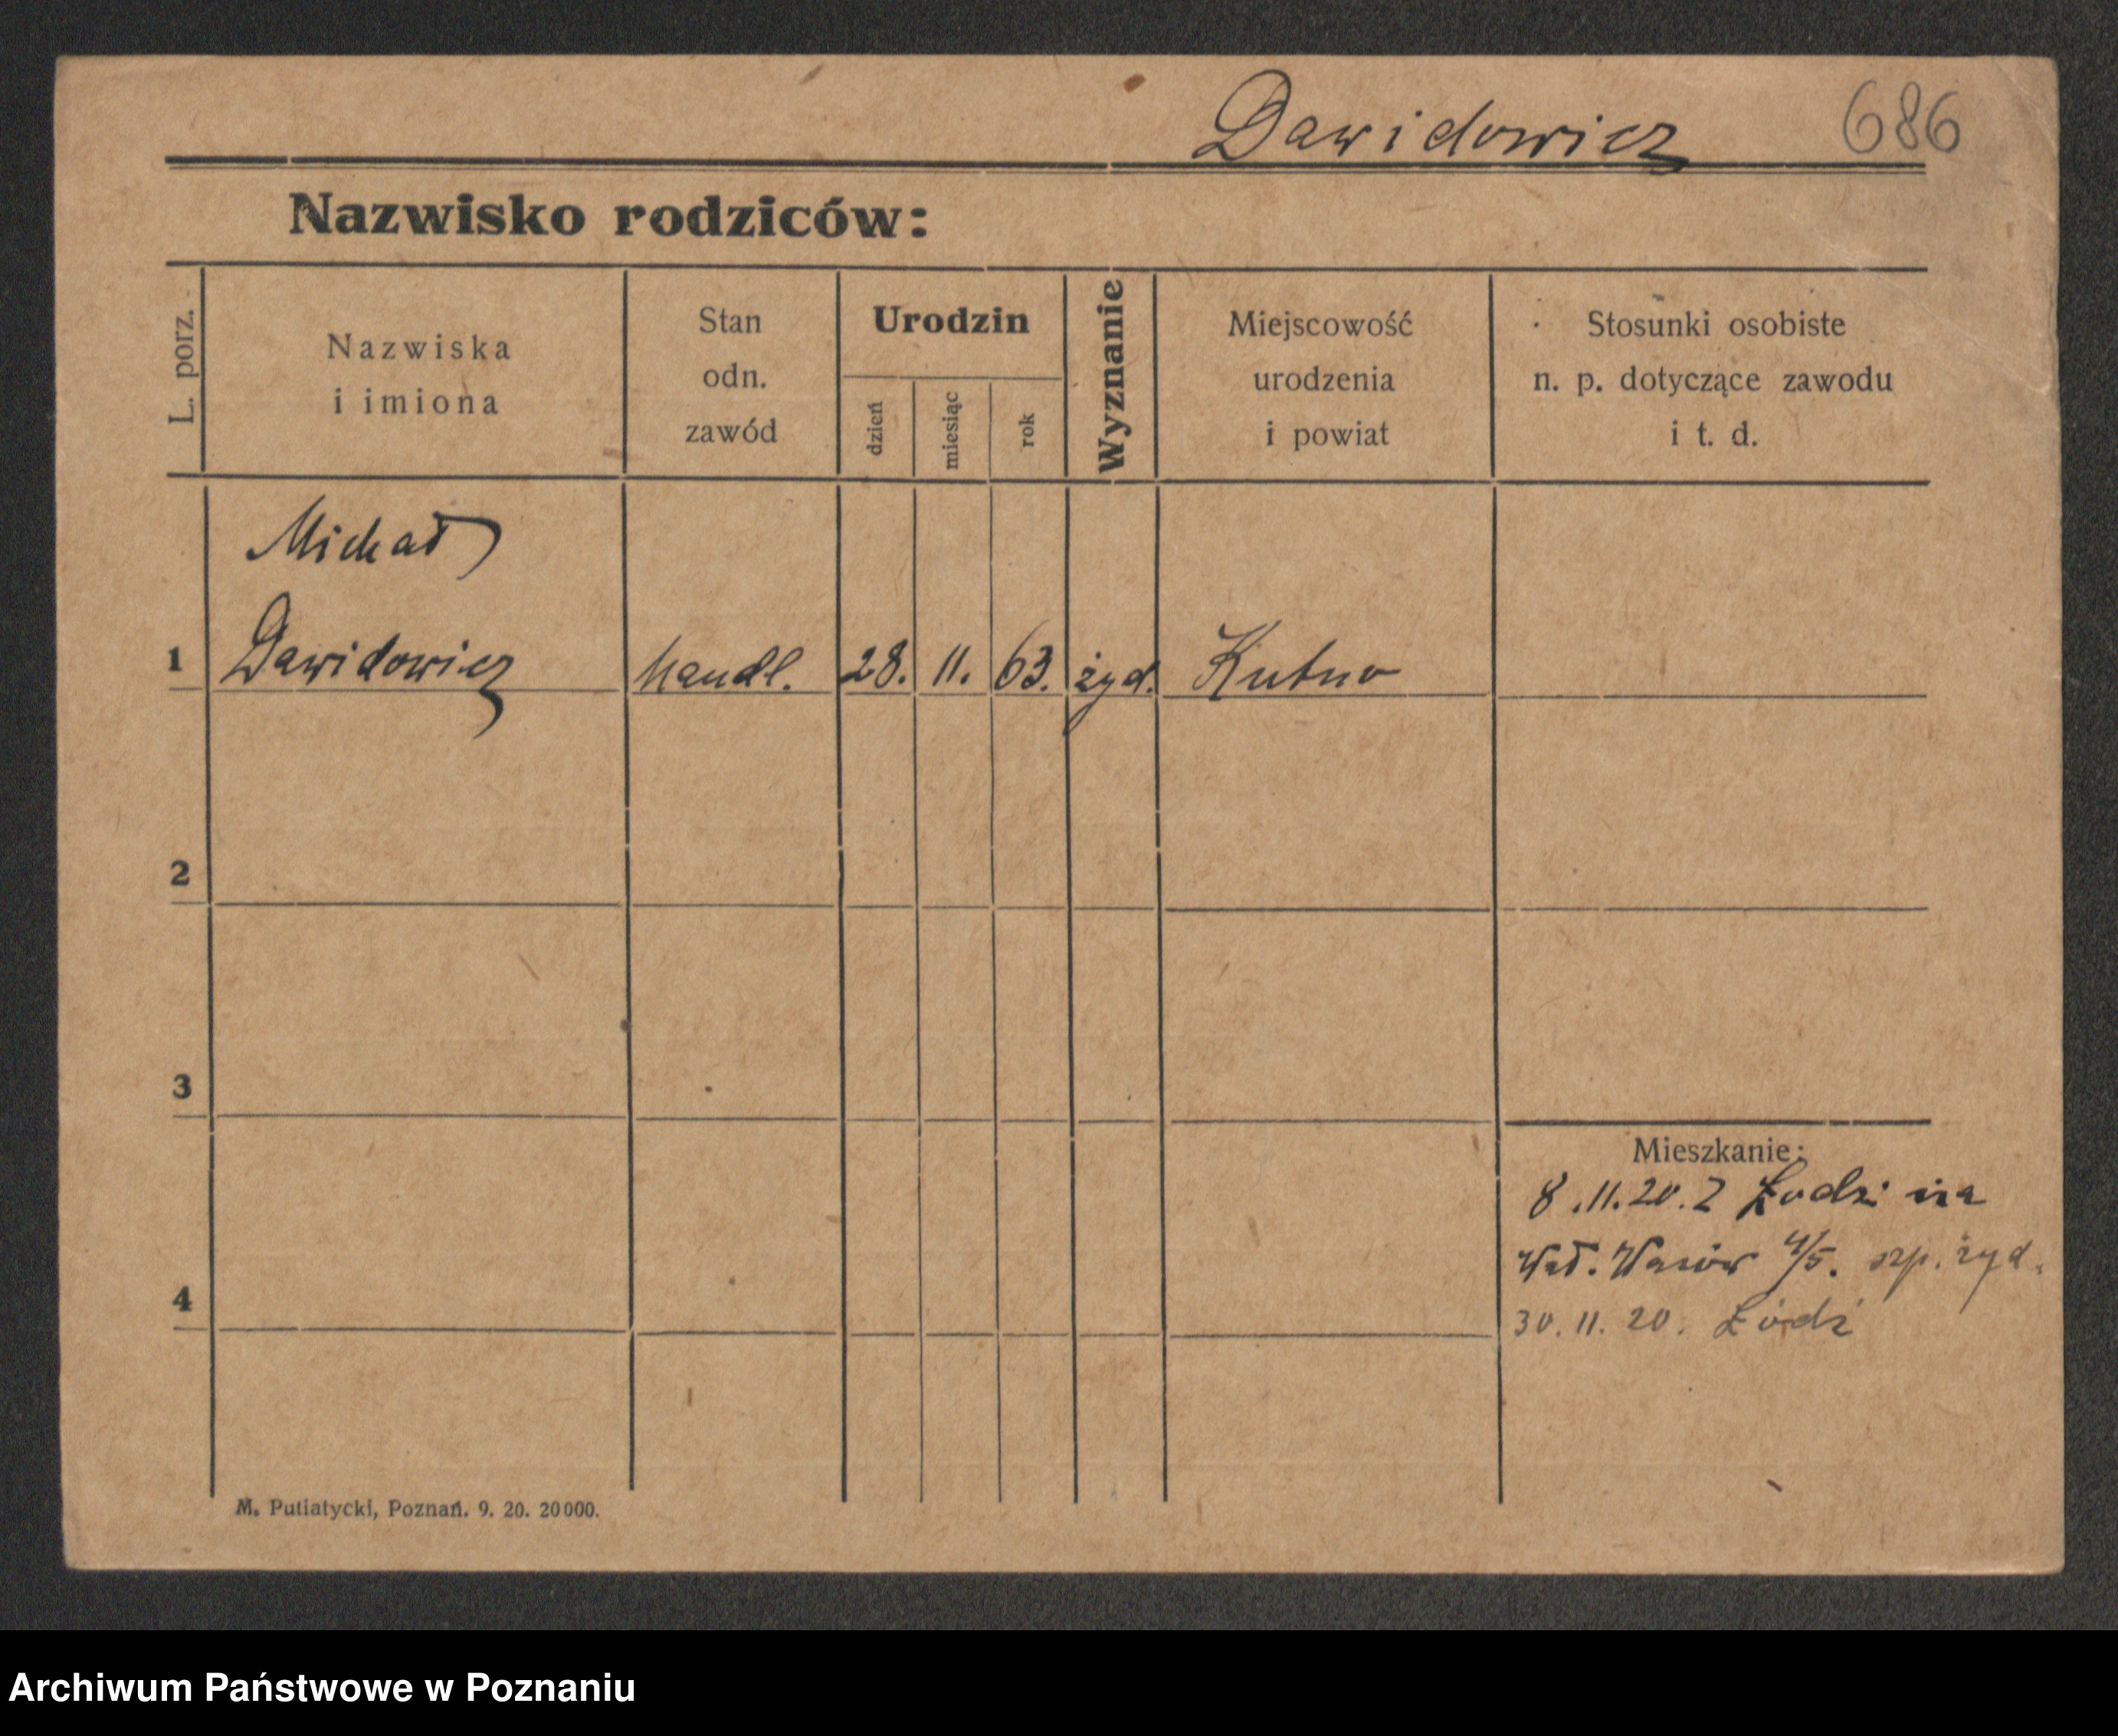 Dawidowicz 686
Nazwisko rodziców:
L. porz.
Nazwiska
i imiona
Stan
odn.
zawód
Urodzin
dzień
miesiąc
rok
Wyznanie
Miejscowość
urodzenia
i powiat
Stosunki osobiste
n. p. dotyczące zawodu
i t. d.
Michał
1 Dawidowicz handl. 28. 11. 63. żyd. Kutno
2
3
Mieszkanie:
8.11.20. z Łodzi na
4/5. szp. żyd.
4
30.11.20. Łódź
M. Putiatycki, Poznań. 9. 20. 20000.
Archiwum Państwowe w Poznaniu